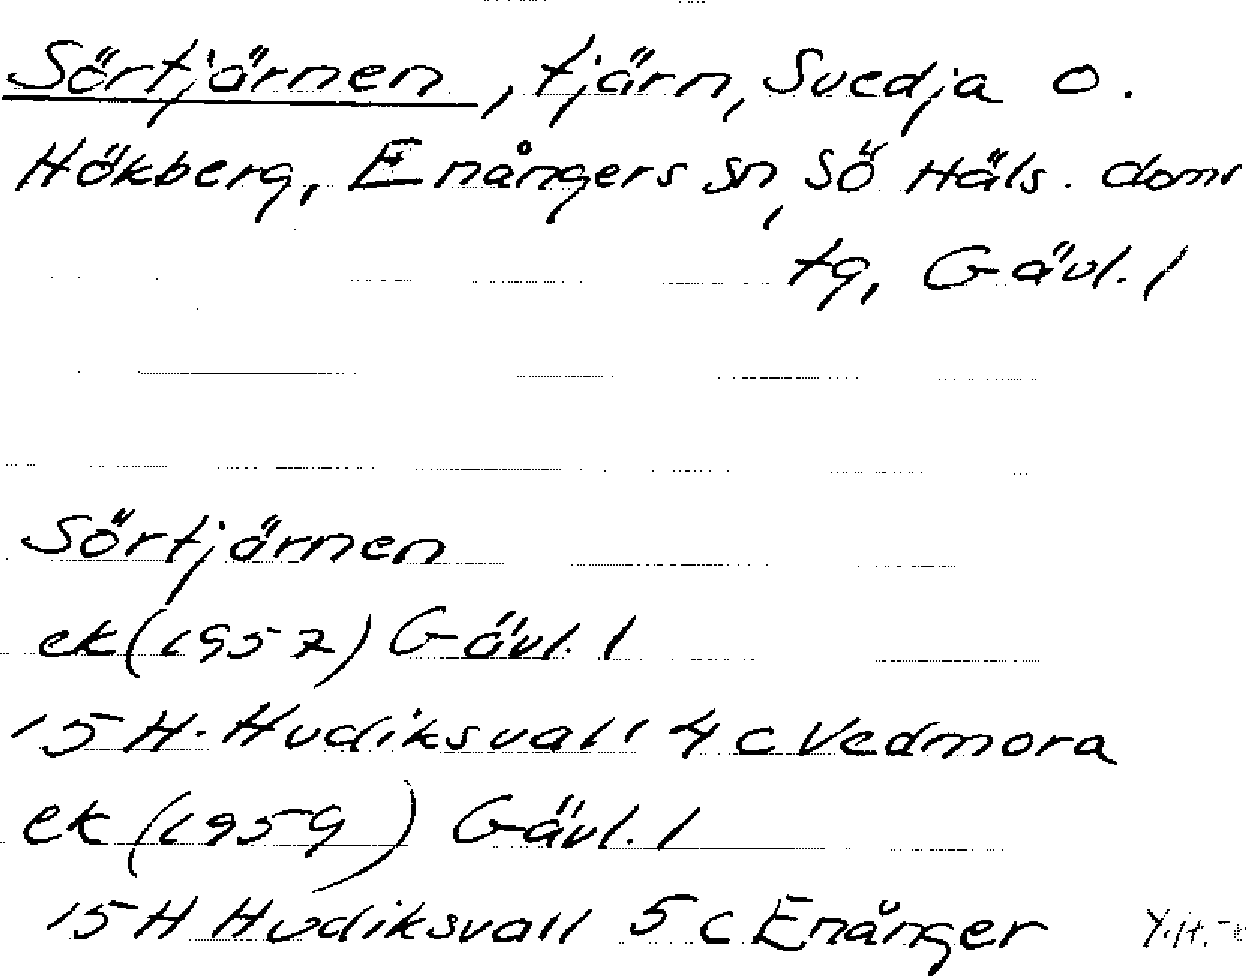 Sörtjärnen, tjärn, Svedja o.
Hökberg, Enångers sn, Sö Häls. doms
tg, Gävl. l
Sörtjärnen
ek (1957) Gävl. l
15 H. Hudiksvall 4 c Vedmora
ek (1959) Gävl. l
15 H Hudiksvall 5 c Enånger